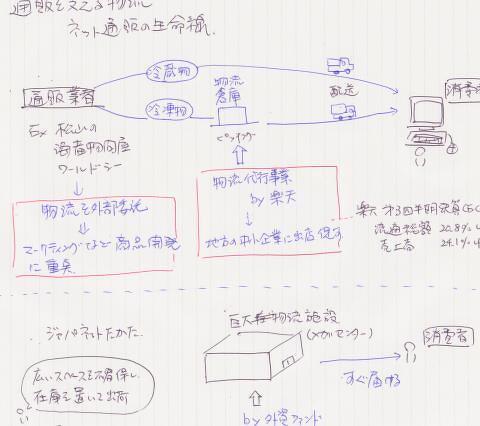 通販を支える物流
ネット通販の生命線
冷蔵物
物流
倉庫
配送
消費者
通販業者
冷凍物
ピッキング
Ex 松山の
海産物問屋
ワールドシー
物流代行事業
by 楽天
地方の中小企業に出店促す
物流を外部委託
マーケティングなど商品開発
に重点
楽天 第3四半期決算(EC
流通総額 20.8%
売上高 24.1%
巨大物流施設
(メガセンター)
ジャパネットたかた
消費者
広いスペースを確保し
在庫を置いて出荷
すぐ届ける
by 外資ファンド